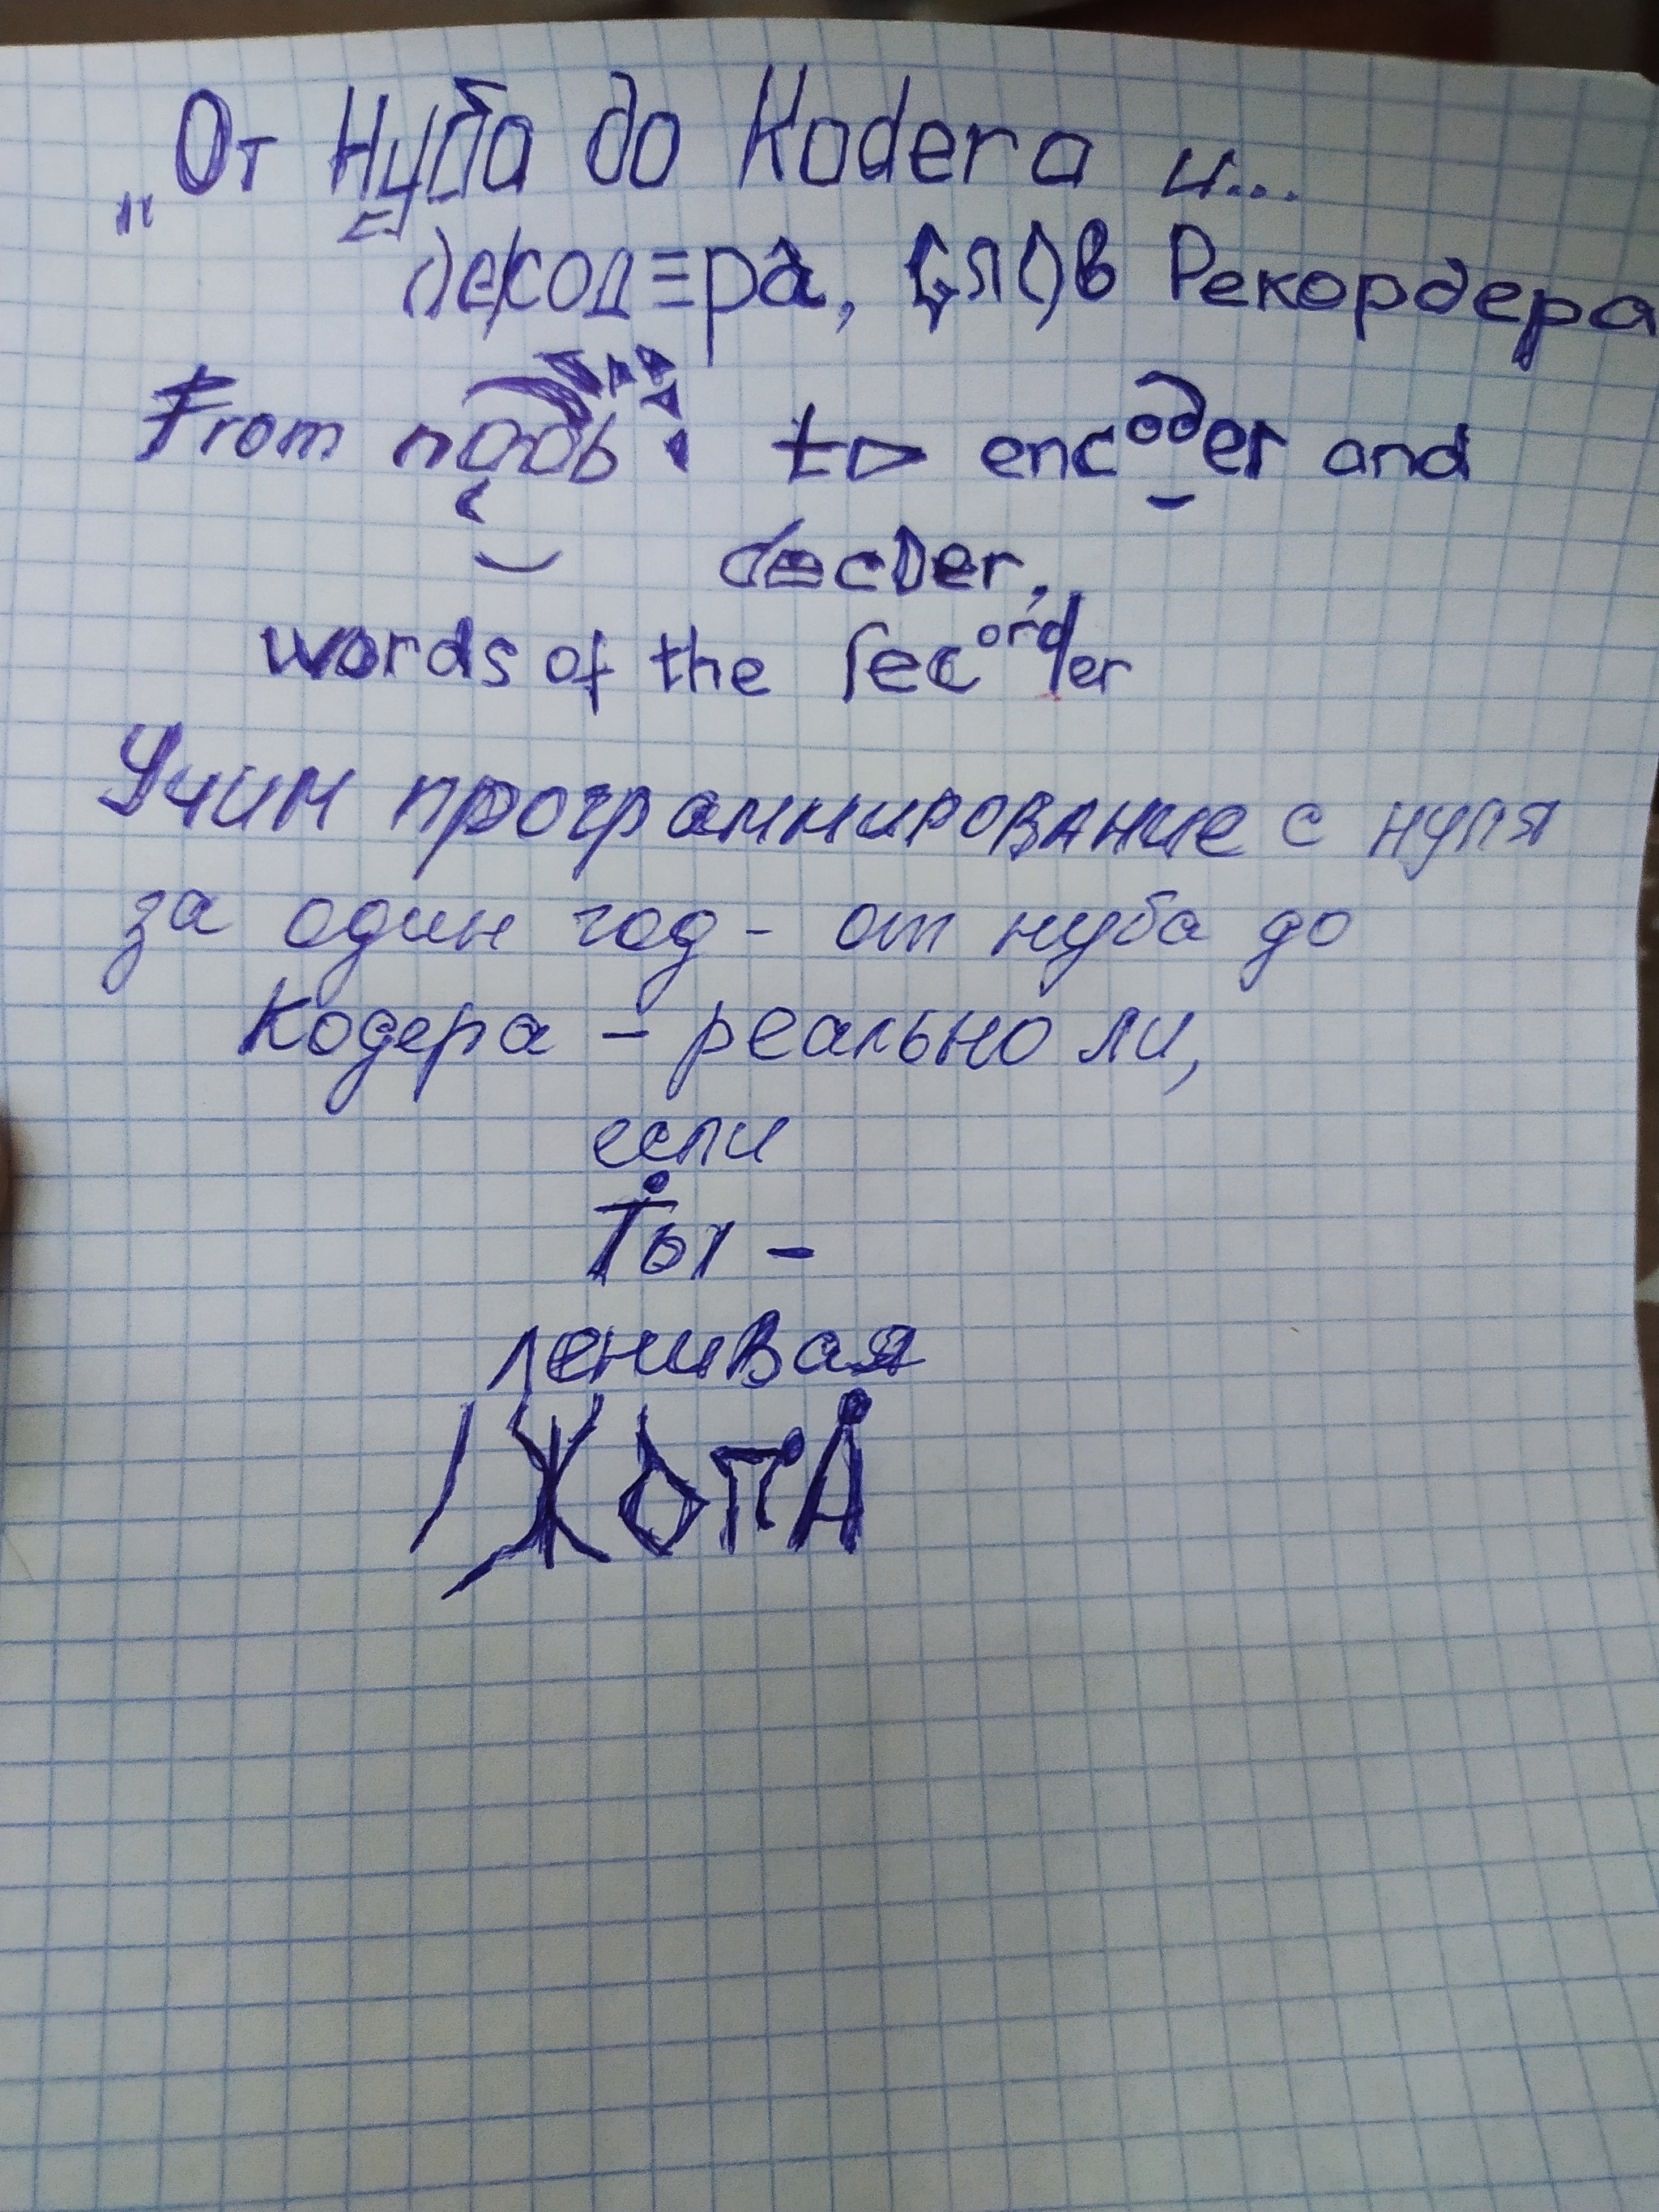 „От Нуба до Kodera и...
декодера, слов Рекордера
From noob to encoder and
decoder,
words of the recorder
Учим программирование с нуля
за один год - от нуба до
Кодера - реально ли,
если
Ты -
ленивая
ЖОПА